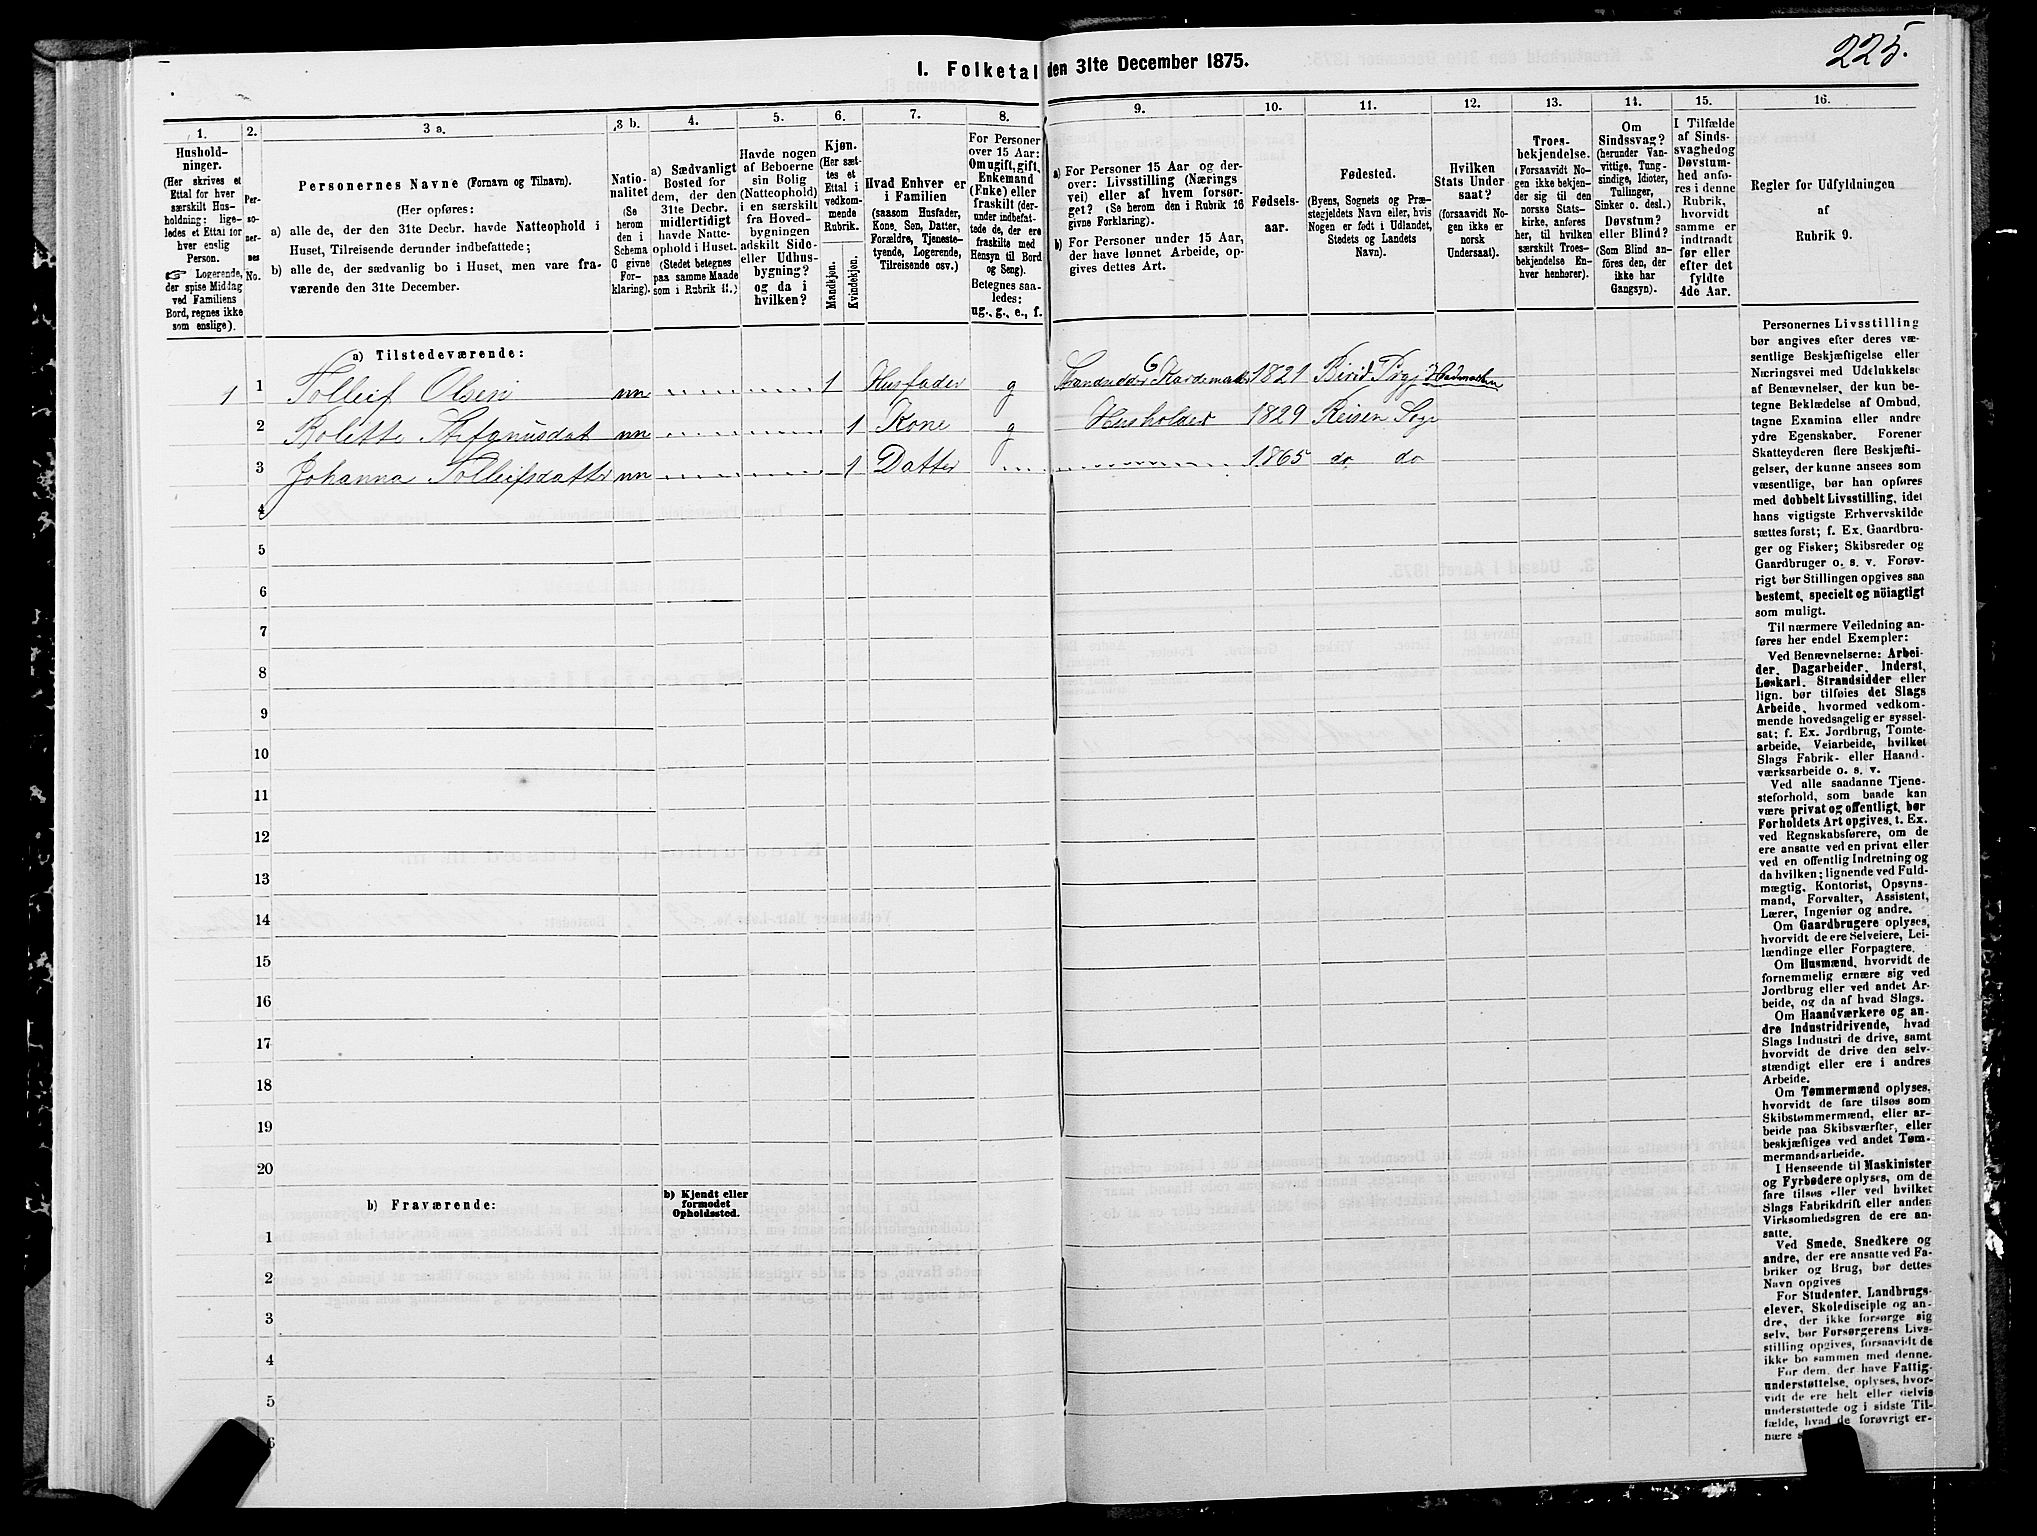 225.
I. Folketal den 31te December 1875.
1.
2.
3 a.
3 b.
4.
5.
6.
7.
8.
9.
10.
11.
12.
13.
14.
15.
16.
Hushold-
ninger.
(Her skrives et
Ettal for hver
særskilt Hus-
holdning; lige-
ledes et Ettal for
hver enslig
Person.
☞ Logerende,
der spise Middag
ved Familiens
Bord, regnes ikke
som enslige).
Per-
so-
ner-
nes
No.
Personernes Navne (Fornavn og Tilnavn).
(Her opføres:
a) alle de, der den 31te Decbr. havde Natteophold i
Huset, Tilreisende derunder indbefattede;
b) alle de, der sædvanlig bo i Huset, men vare fra-
værende den 31te December.
Natio-
nalitet
(Se
herom
den i
Schema
O givne
For-
klaring).
a) Sædvanligt
Bosted for
dem, der den
31te Decbr.
midlertidigt
havde Natte-
ophold i Huset.
(Stedet betegnes
paa samme Maade
som i Rubrik 11.)
Havde nogen
af Beboerne
sin Bolig
(Natteophold)
i en særskilt
fra Hoved-
bygningen
adskilt Side-
eller Udhus-
bygning?
og da i
hvilken?
Kjøn.
(Her sæt-
tes et
Ettal i
vedkom-
mende
Rubrik.
Mandkjøn.
Kvindekjøn.
Hvad Enhver er
i Familien
(saasom Husfader,
Kone, Søn, Datter,
Forældre, Tjeneste-
tyende, Logerende,
Tilreisende osv.)
For Personer
over 15 Aar:
Om ugift, gift,
Enkemand
(Enke) eller
fraskilt (der-
under indbefat-
tede de, der ere
fraskilte med
Hensyn til Bord
og Seng).
Betegnes saa-
ledes:
ug., g., e., f.
a) For Personer 15 Aar og der-
over: Livsstilling (Nærings
vei) eller af hvem forsør-
get? (Se herom den i Rubrik 16
givne Forklaring).
b) For Personer under 15 Aar,
der have lønnet Arbeide, op-
gives dettes Art.
Fødsels-
aar.
Fødested.
(Byens, Sognets og Præ-
stegjeldets Navn eller, hvis
Nogen er født i Udlandet,
Stedets og Landets
Navn).
Hvilken
Stats Under
saat?
(forsaavidt No-
gen ikke er
norsk
Undersaat).
Troes-
bekjendelse.
(Forsaavidt No-
gen ikke bekjen-
der sig til den
norske Stats-
kirke, anføres
her, til hvilken
særskilt Troes-
bekjendelse En-
hver henhører).
Om
Sindssvag?
(herunder Van-
vittige, Tung-
sindige, Idioter,
Tullinger,
Sinker o. desl.)
Døvstum?
eller Blind?
(Som Blind an-
føres den, der
ikke har
Gangsyn).
I Tilfælde
af Sinds-
svaghed og
Døvstum-
hed anfø-
res i denne
Rubrik,
hvorvidt
samme er
indtraadt
før eller
efter det
fyldte
4de Aar.
Regler for Udfyldningen
af
Rubrik 9.
a) Tilstedeværende:
1 1 Tolleif Olsen nn 1 Husfader g Strandsidder 1821 Birid Prgj Hedmarken
2 Rolette nn 1 Kone g 1829 Reisen Sogn
3 Johanna Tolleifsdatter nn 1 Datter 1865 do do
4
5
6
7
8
9
10
11
12
13
14
15
16
17
18
19
20
b) Fraværende:
b) Kjendt eller
formodet
Opholdssted.
1
2
3
4
5
6
Personernes Livsstilling
bør angives efter deres væ-
sentlige Beskjæftigelse eller
Næringsvei med Udelukkelse
af Benævnelser, der kun be-
tegne Beklædelse af Ombud,
tagne Examina eller andre
ydre Egenskaber. Forener
Skatteyderen flere Beskjæfti-
gelser, der kunne ansees som
væsentlige, bør han opføres
med dobbelt Livsstilling, idet
hans vigtigste Erhvervskilde
sættes først; f. Ex. Gaardbru-
ger og Fisker; Skibsreder og
Gaardbruger o. s. v. Forøv-
rigt bør Stillingen opgives saa
bestemt, specielt og nöiagtigt
som muligt.
Til nærmere Veiledning an-
føres her endel Exempler:
Ved Benævnelserne: Arbei-
der, Dagarbeider, Inderst,
Løskarl, Strandsidder eller
lign. bør tilføies det Slags
Arbeide, hvormed vedkom-
mende hovedsagelig er syssel-
sat; f. Ex. Jordbrug, Tomte-
arbeide, Veiarbeide, hvilket
Slags Fabrik- eller Haand-
værksarbeide o. s. v.
Ved alle saadanne Tjene-
steforhold, som baade kan
være privat og offentligt, bør
Forholdets Art opgives, t. Ex.
ved Regnskabsførere, om de
ere ansatte ved en privat eller
ved en offentlig Indretning og
da hvilken; lignende ved Fuld-
mægtig, Kontorist, Opsyns-
mand, Forvalter, Assistent,
Lærer, Ingeniør og andre.
Om Gaardbrugere oplyses,
hvorvidt de ere Selveiere, Lei-
lændinge eller Forpagtere.
Om Husmænd, hvorvidt de
fornemmelig ernære sig ved
Jordbrug eller ved andet Ar-
beide, og da af hvad Slags.
Om Haandværkere og an-
dre Industridrivende, hvad
Slags Industri de drive, samt
hvorvidt de drive den selv-
stændigt eller ere i andres
Arbeide.
Om Tømmermænd oplyses,
hvorvidt de fare tilsøs som
Skibstømmermænd, eller ar-
beide paa Skibsværfter, eller
beskjæftiges ved andet Tøm-
mermandsarbeide.
I Henseende til Maskinister
og Fyrbødere oplyses, om de
fare tilsøs eller ved hvilket
Slags Fabrikdrift eller anden
Virksomhedsgren de ere an-
satte.
Ved Smede, Snedkere og
andre, der ere ansatte ved Fa-
briker og Brug, bør dettes
Navn opgives
For Studenter, Landbrugs-
elever, Skoledisciple og an-
dre, der ikke forsørge sig
selv, bør Forsørgerens Livs-
stilling opgives, forsaavidt de
ikke bo sammen med denne.
For dem, der have Fattig-
understøttelse, oplyses, hvor-
vidt de ere helt eller delvis
understøttede og i sidste Til-
fælde, hvad de forøvrigt er-
nære